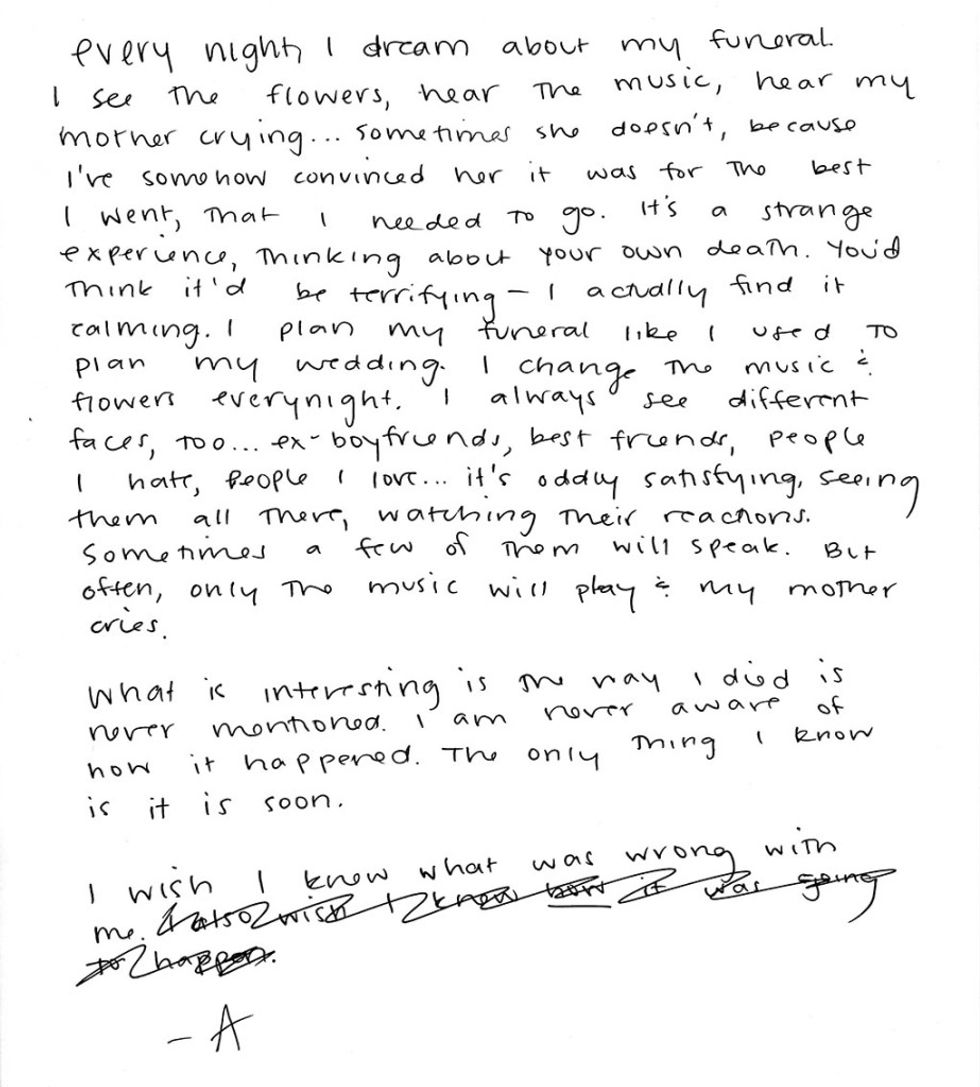 every night I dream about my funeral.
I see the flowers, hear the music, hear my
mother crying... sometimes she doesn't, because
I've somehow convinced her it was for the best
I went, that I needed to go. It's a strange
experience, thinking about your own death. You'd
think it'd be terrifying - I actually find it
calming. I plan my funeral like I used to
plan my wedding. I change the music &
flowers everynight. I always see different
faces, too... ex-boyfriends, best friends, people
I hate, people I love... it's oddly satisfying, seeing
them all there, watching their reactions.
Sometimes a few of them will speak. But
often, only the music will play & my mother
cries.
What is interesting is the way I died is
never mentioned. I am never aware of
how it happened. The only thing I know
is it is soon.
I wish I knew what was wrong with
me. I also wish I knew how it was going
to happen.
- A